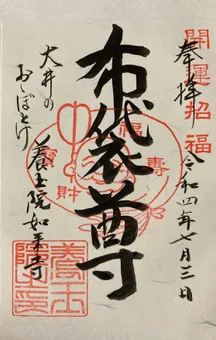 開運招福
奉拝
令和四年七月三日
布袋尊
福
壽
寶
財
大井の
おしぼとけ
養玉院如来寺
養玉
院印